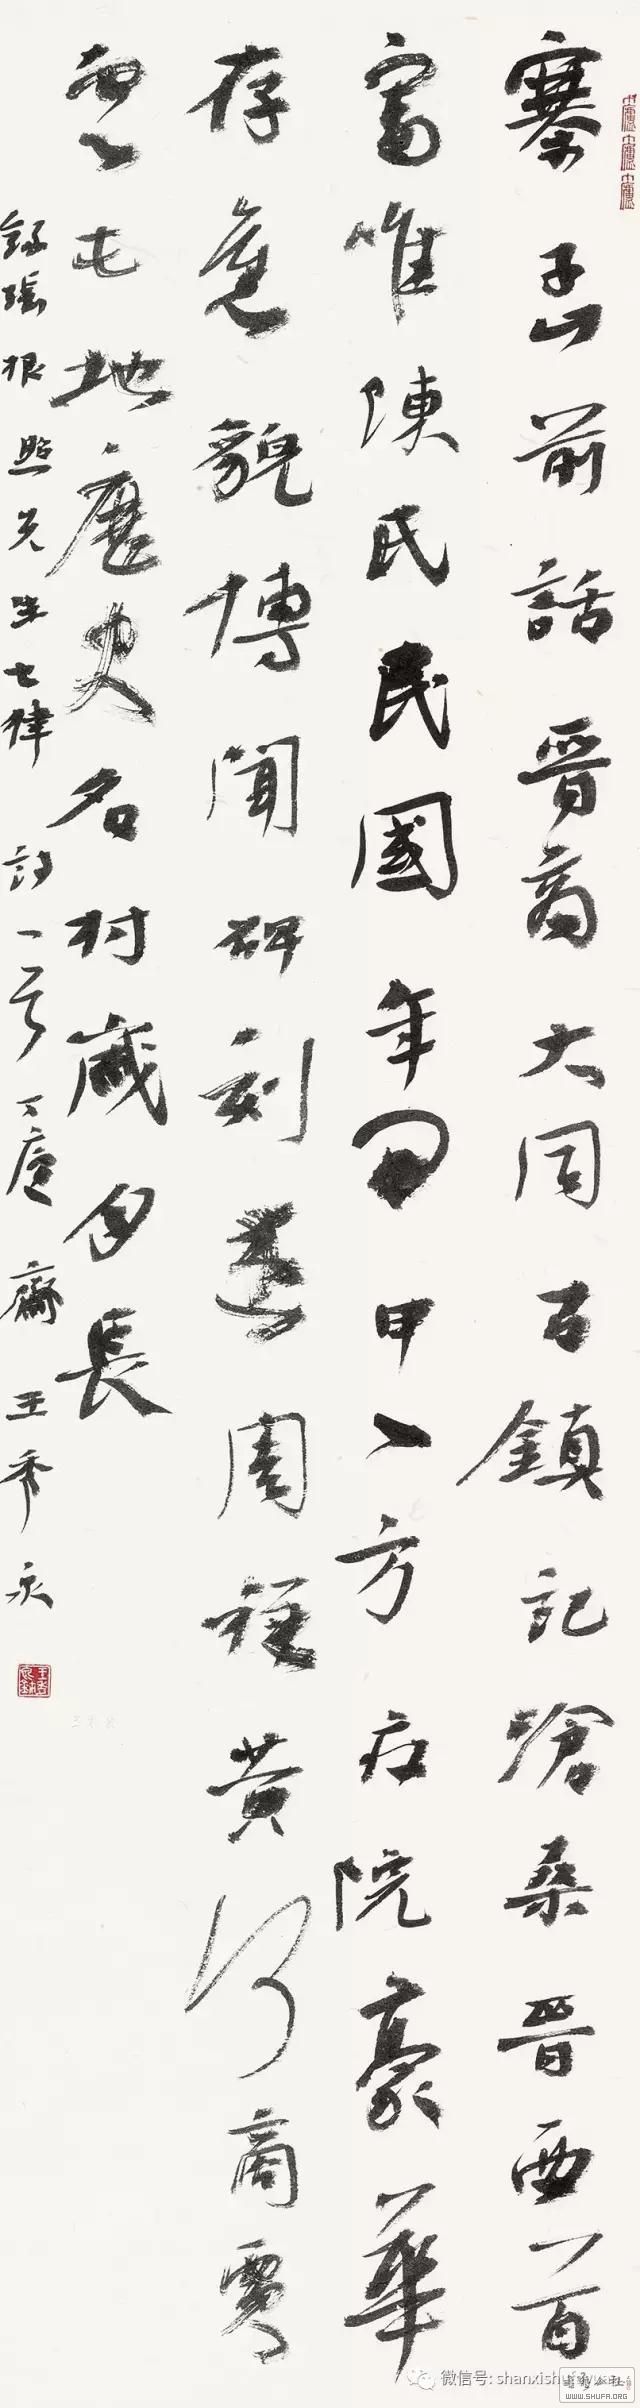 寨子山前話晉商大同古鎮記滄桑晉西首
富唯陳氏民國年間甲八方莊院豪華
存舊貌博聞碑刻述周詳黃河商賈
曾屯地歷史名村歲月長
錄張根照先生七律詩一首 齋王
微信号: shanxishufayuan
WWW.SHUFA.ORG